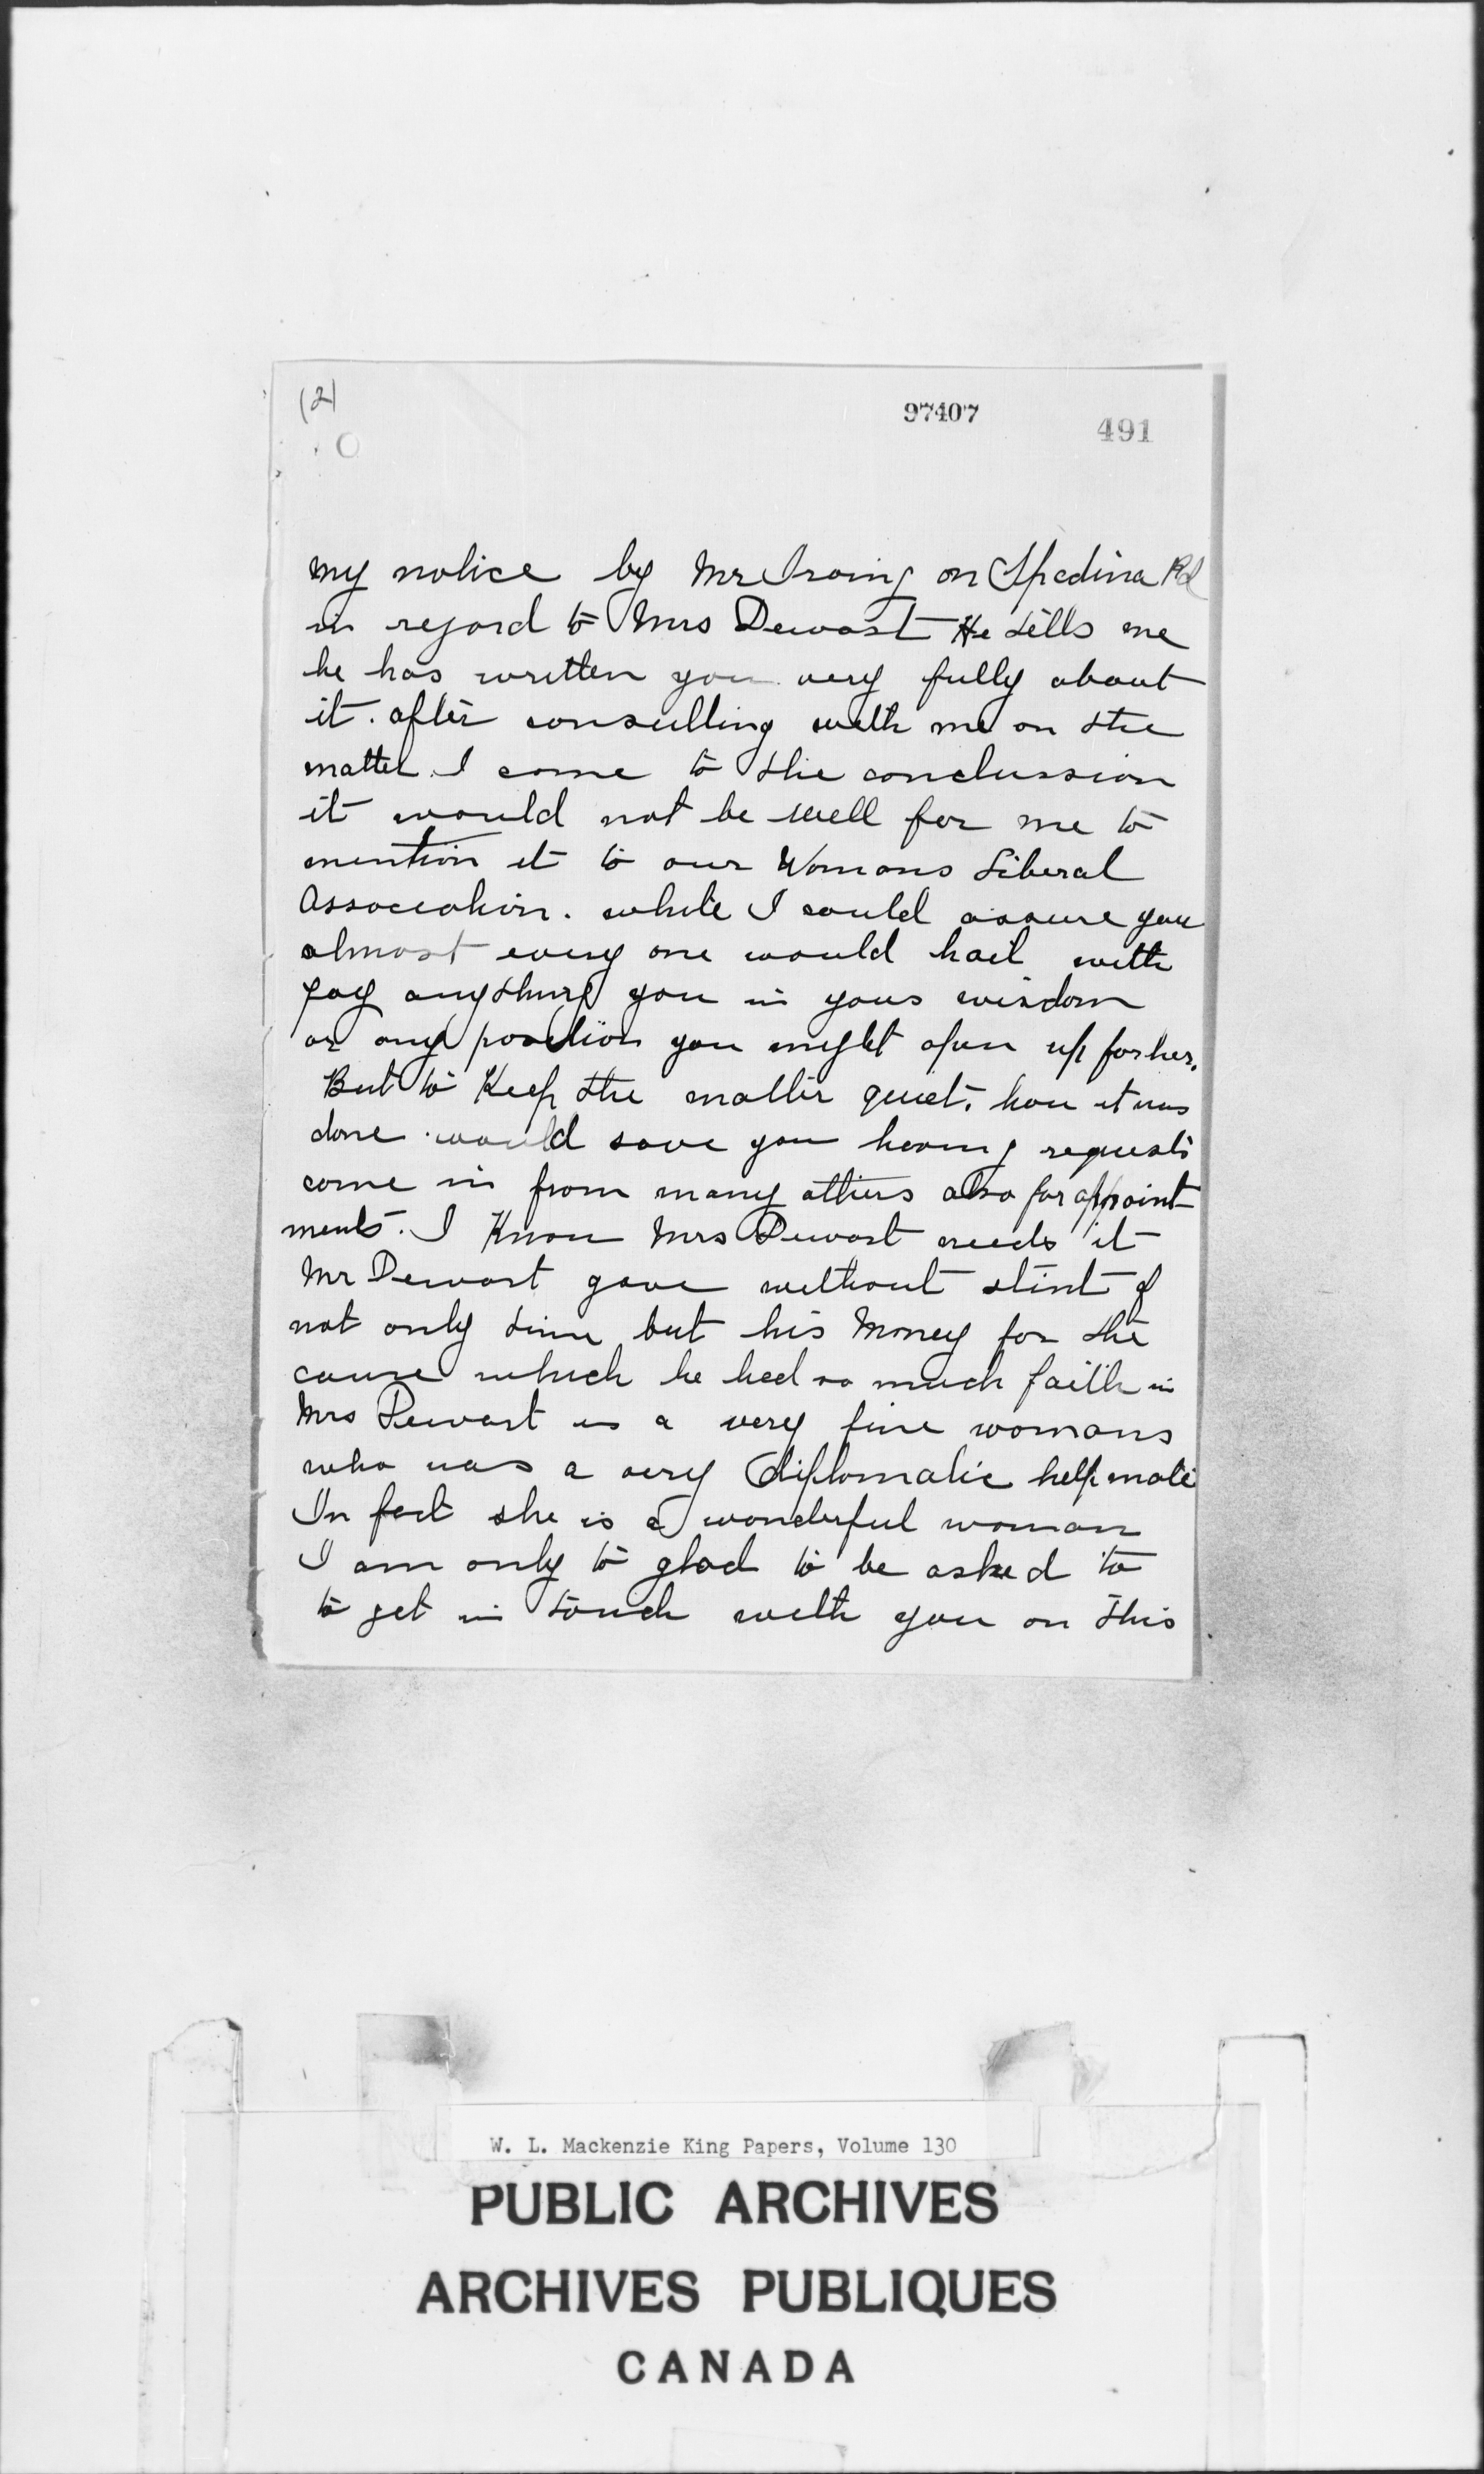 (2)
97407
491
my notice by Mr Irving on Spedina Rd
in regard to Mrs Dewart He tells me
he has written you very fully about
it. after consulting with me on the
matter I come to the conclussion
it would not be well for me to
mention it to our Womans Liberal
Association. while I could assure you
almost every one would hail with
joy anything you in yours wisdom
or any position you might open up for her.
But to Keep the matter quiet. how it was
done would save you having requests
come in from many others also for appoint
ments. I Know Mrs Dewart needs it
Mr Dewart gave without stint of
not only time but his Money for the
cause which he had so much faith in
Mrs Dewart is a very fine womans
who was a very diplomatic helpmate
In fact she is a wonderful woman
I am only to glad to be asked to
to get in touch with you on this
W. L. Mackenzie King Papers, Volume 130
PUBLIC ARCHIVES
ARCHIVES PUBLIQUES
CANADA